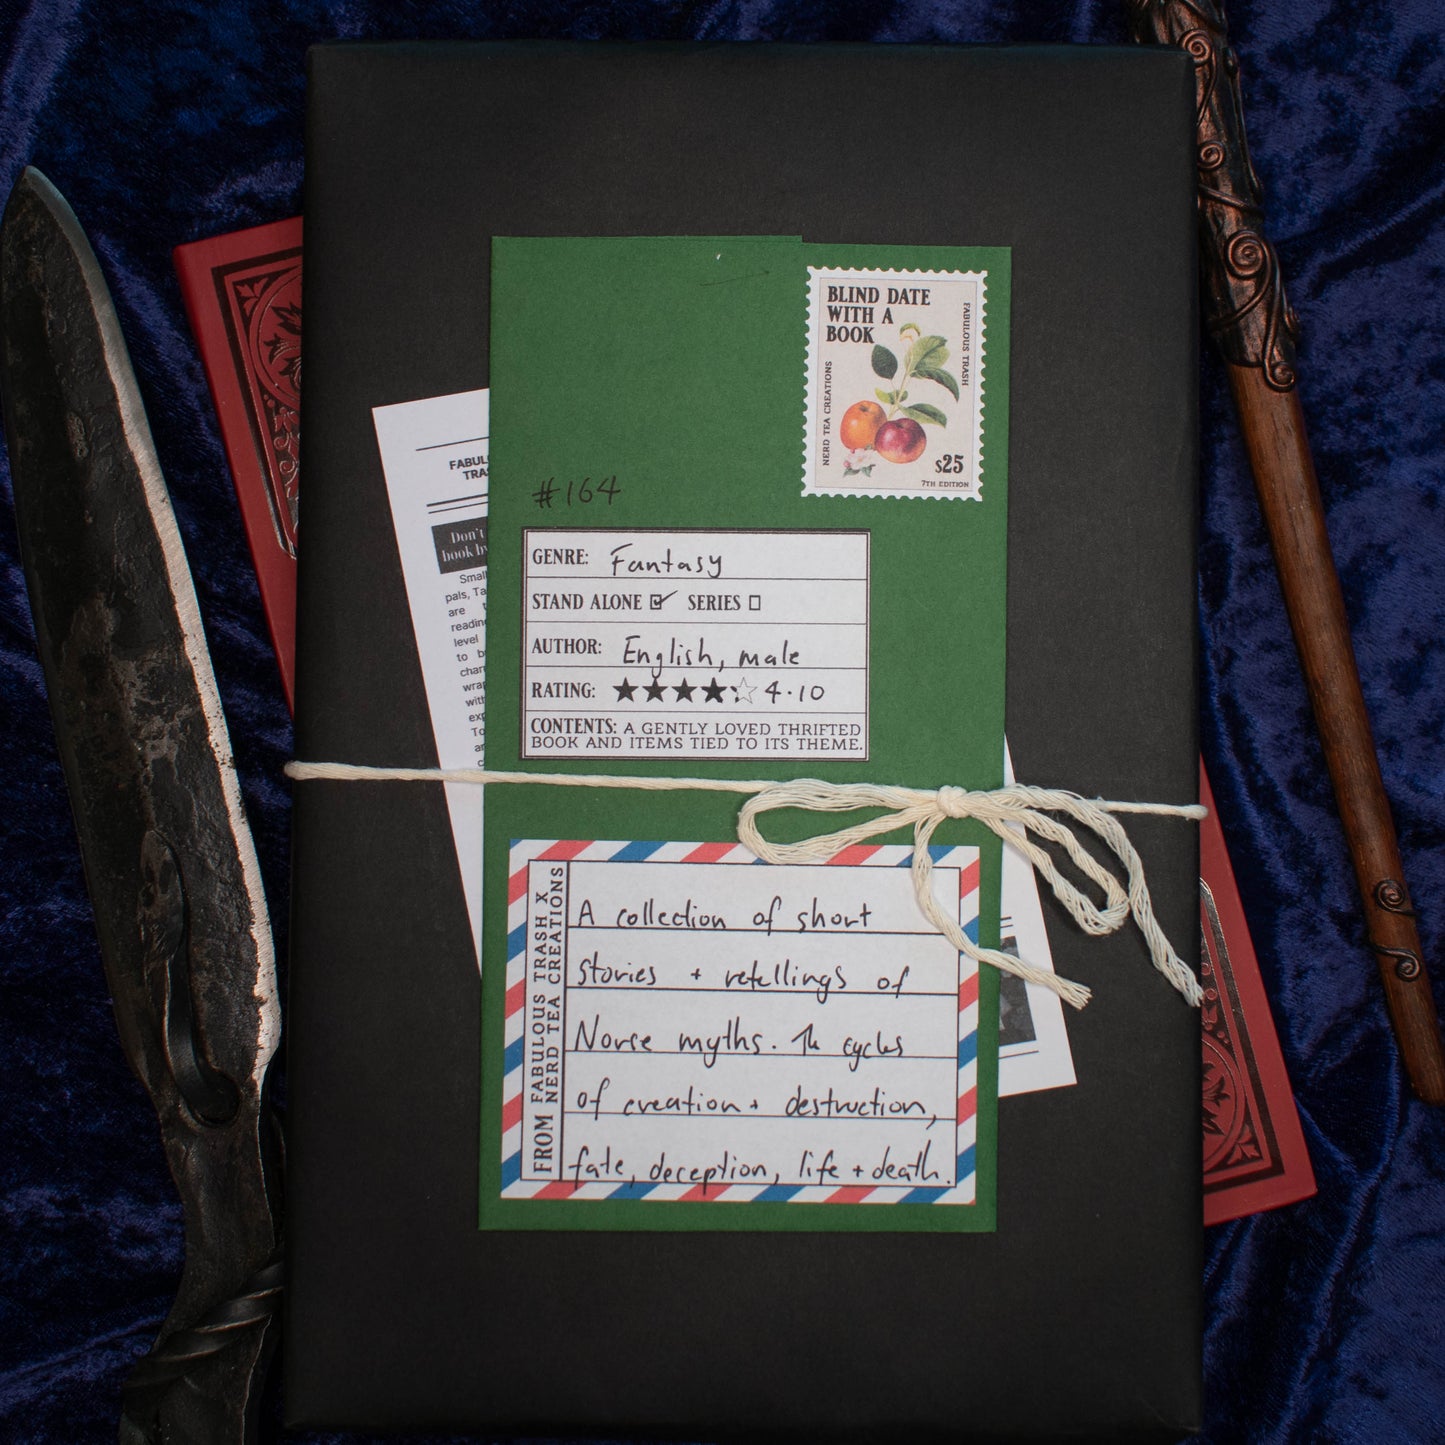 BLIND DATE
WITH A
BOOK
FABULOUS TRASH
NERD TEA CREATIONS
$25
7TH EDITION
FABUL
TRA
Don't
book by
Small
pals, Ta
are t
reading
level
to b
char
wrap
with
exp
To
an
c
#164
GENRE: Fantasy
STAND ALONE ☑ SERIES ☐
AUTHOR: English, male
RATING: ★★★★☆ 4.10
CONTENTS: A GENTLY LOVED THRIFTED
BOOK AND ITEMS TIED TO ITS THEME.
FROM FABULOUS TRASH X
NERD TEA CREATIONS
A collection of short
stories + retellings of
Norse myths. The cycles
of creation + destruction,
fate, deception, life + death.